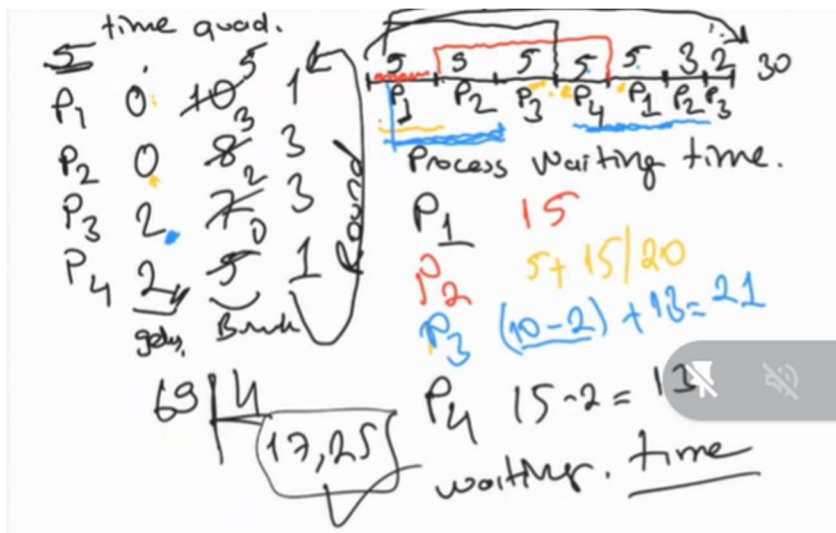 time quad.
5
P1 0 10 5 1
P2 0 8 3 3
P3 2 7 2 3
P4 2 5 0 1
Round
5 5 5 5 5 3 2 30
P1 P2 P3 P4 P1 P2 P3
Process Waiting time.
P1 15
P2 5+15/20
P3 (10-2)+13=21
P4 15-2=13
waiting. time
69 4
17,25